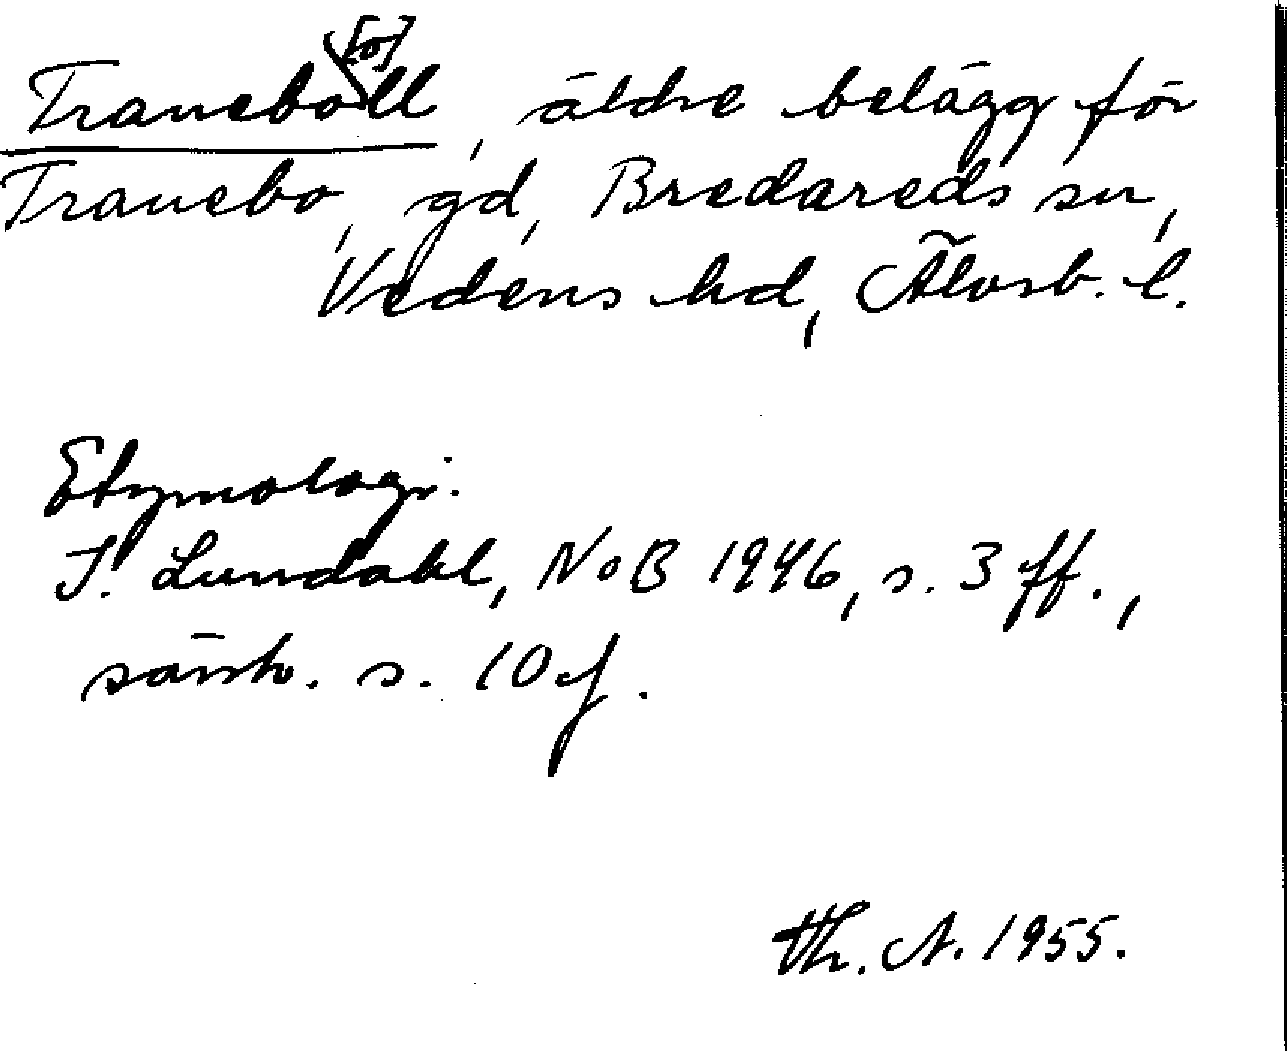 [o]
Traneboll, äldre belägg för
Tranebo, gd, Bredareds sn,
Vedens hd, Älvsb. l.
Etymologi:
I. Lundahl, NoB 1946, s. 3 ff.,
särsk. s. 10 f.
Th. A. 1955.